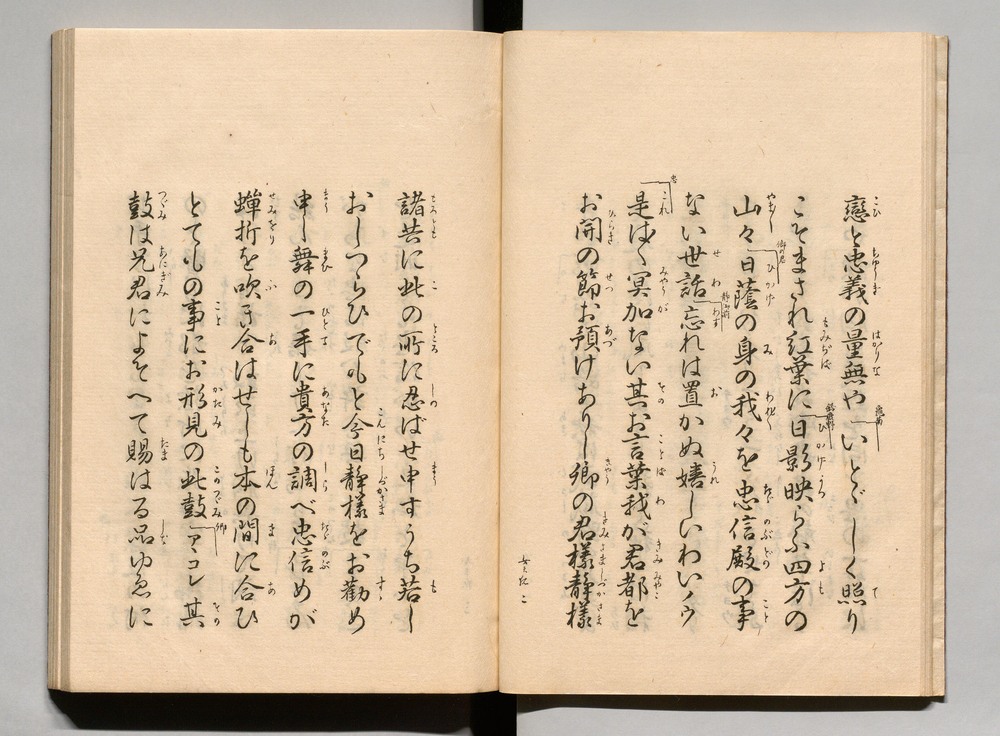 戀と忠義の量無や「いとゞしく照り
こそまされ紅葉に「日影映らふ四方の
山々「日蔭の身の我々を忠信殿の事
ない世話「忘れは置かぬ嬉しいわいノウ
「是は〱冥加ない其お言葉我が君都を
お開の節お預けありし卿の君様静様
諸共に此の所に忍ばせ申すうち若し
おしつらひでもと今日静様をお勸め
申し舞の一手に貴方の調べ忠信めが
蟬折を吹き合はせしも本の間に合ひ
とてもの事にお形見の此鼓「アコレ其
鼓は兄君によそへて賜はる品ゆゑに